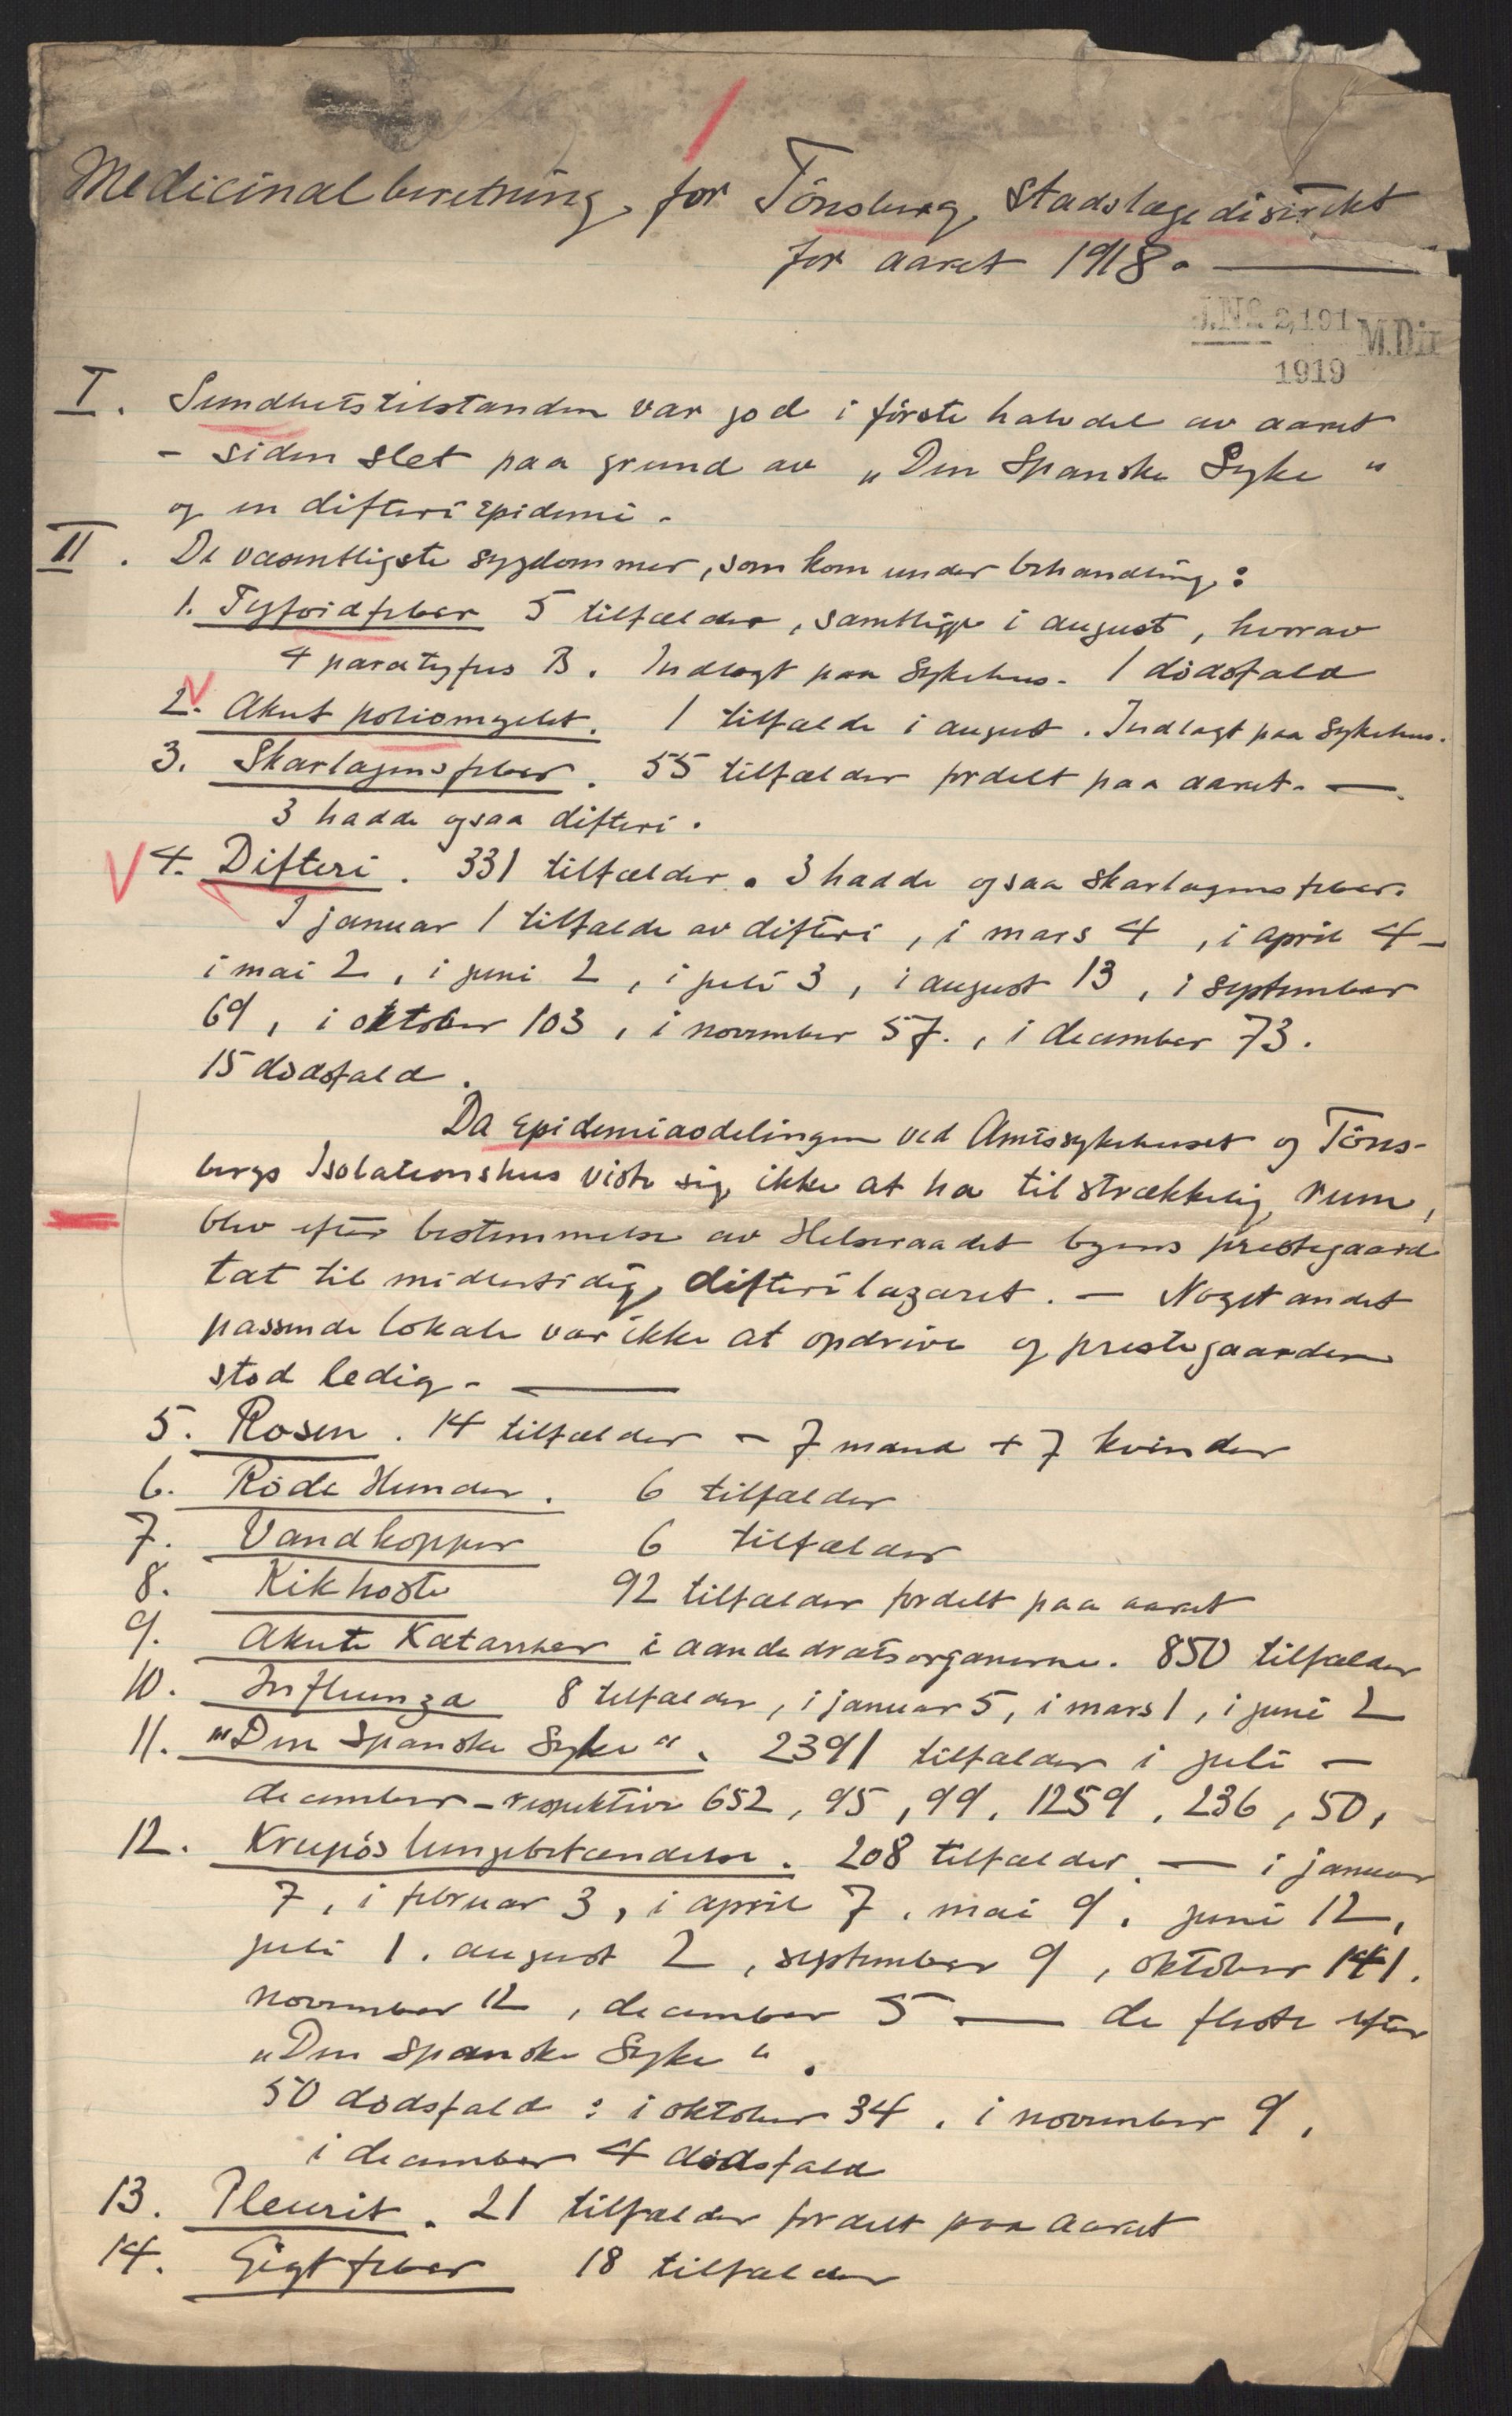 Medicinalberetning for Tönsberg Stadslægedistrikt
for aaret 1918.
J.No. 2,191 M.Dir
1919
I. Sundhetstilstanden var god i förste halvdel av aaret
- siden slet paa grund av „Den Spanske Syke“
og en difteriepidemi.
II. De væsentligste sygdommer, som kom under behandling:
1. Tyfoidfeber 5 tilfælder, samtlige i august, hvorav
4 paratyfus B. Indlagt paa Sykehus. 1 dödsfald
2. Akut poliomyelit. 1 tilfælde i august. Indlagt paa Sykehus.
3. Skarlagensfeber. 55 tilfælder fordelt paa aaret. —
3 hadde ogsaa difteri.
4. Difteri. 331 tilfælder. 3 hadde ogsaa skarlagensfeber.
I januar 1 tilfælde av difteri, i mars 4, i april 4 -
i mai 2, i juni 2, i juli 3, i august 13, i september
69, i oktober 103, i november 57., i december 73.
15 dödsfald.
Da Epidemiavdelingen ved Amtssykehuset og Töns-
bergs Isolationshus viste sig ikke at ha tilstrækkelig rum,
blev efter bestemmelse av Helseraadet byens prestegaard
tat til midlertidig difterilazaret. — Noget andet
passende lokale var ikke at opdrive og prestegaarden
stod ledig. —
5. Rosen. 14 tilfælder - 7 mænd + 7 kvinder
6. Röde Hunder. 6 tilfælder
7. Vandkopper 6 tilfælder
8. Kikhoste 92 tilfælder fordelt paa aaret
9. Akute Katarrher i aandedrætsorganerne. 850 tilfælder
10. Influenza 8 tilfælder, i januar 5, i mars 1, i juni 2
11. „Den Spanske Syke“. 2391 tilfælder i juli —
december - respektive 652, 95, 99, 1259, 236, 50,
12. Krupös lungebetændelse. 208 tilfælder. — i januar
7, i februar 3, i april 7, mai 9, juni 12,
juli 1, august 2, september 9, oktober 141,
november 12, december 5 — de fleste efter
„Den Spanske Syke“.
50 dödsfald: i oktober 34, i november 9,
i december 4 dödsfald
13. Pleurit. 21 tilfælder fordelt paa aaret
14. Gigtfeber 18 tilfælder